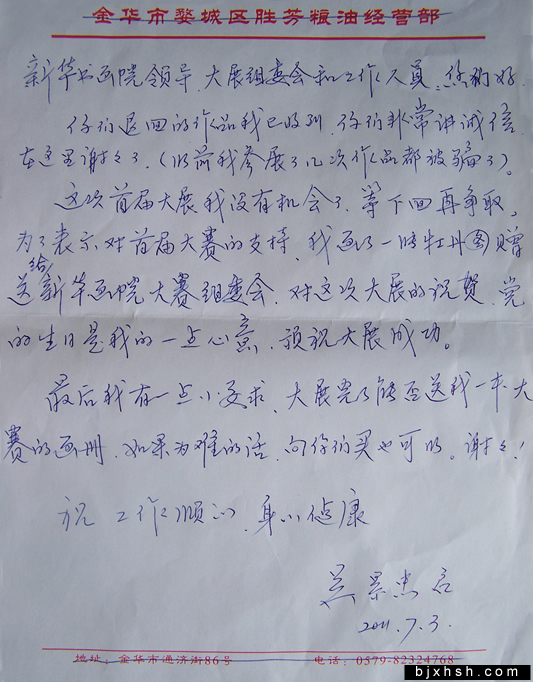 金华市婺城区胜芳粮油经营部
新华书画院领导、大展组委会和工作人员、你们好
你们退回的作品我已收到，你们非常讲诚信
在这里谢谢了。（以前我参展了几次作品都被骗了）。
这次首届大展我没有机会了，等下回再争取。
为了表示对首届大赛的支持，我画了一幅牡丹图赠
给
送新华画院大赛组委会，对这次大展的祝贺，党
的生日是我的一点心意，预祝大展成功。
最后我有一点小要求，大展完了能否送我一本大
赛的画册，如果为难的话，向你们买也可以。谢谢！
祝 工作顺心、身心健康
景忠启
2011.7.3.
地址：金华市通济街86号 电话：0579-82324768
bjxhsh.com